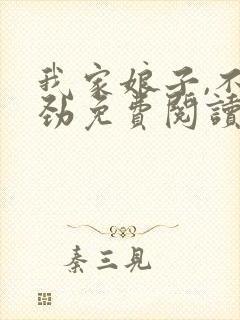 我家娘子,不
劲免費閱讀
秦三見